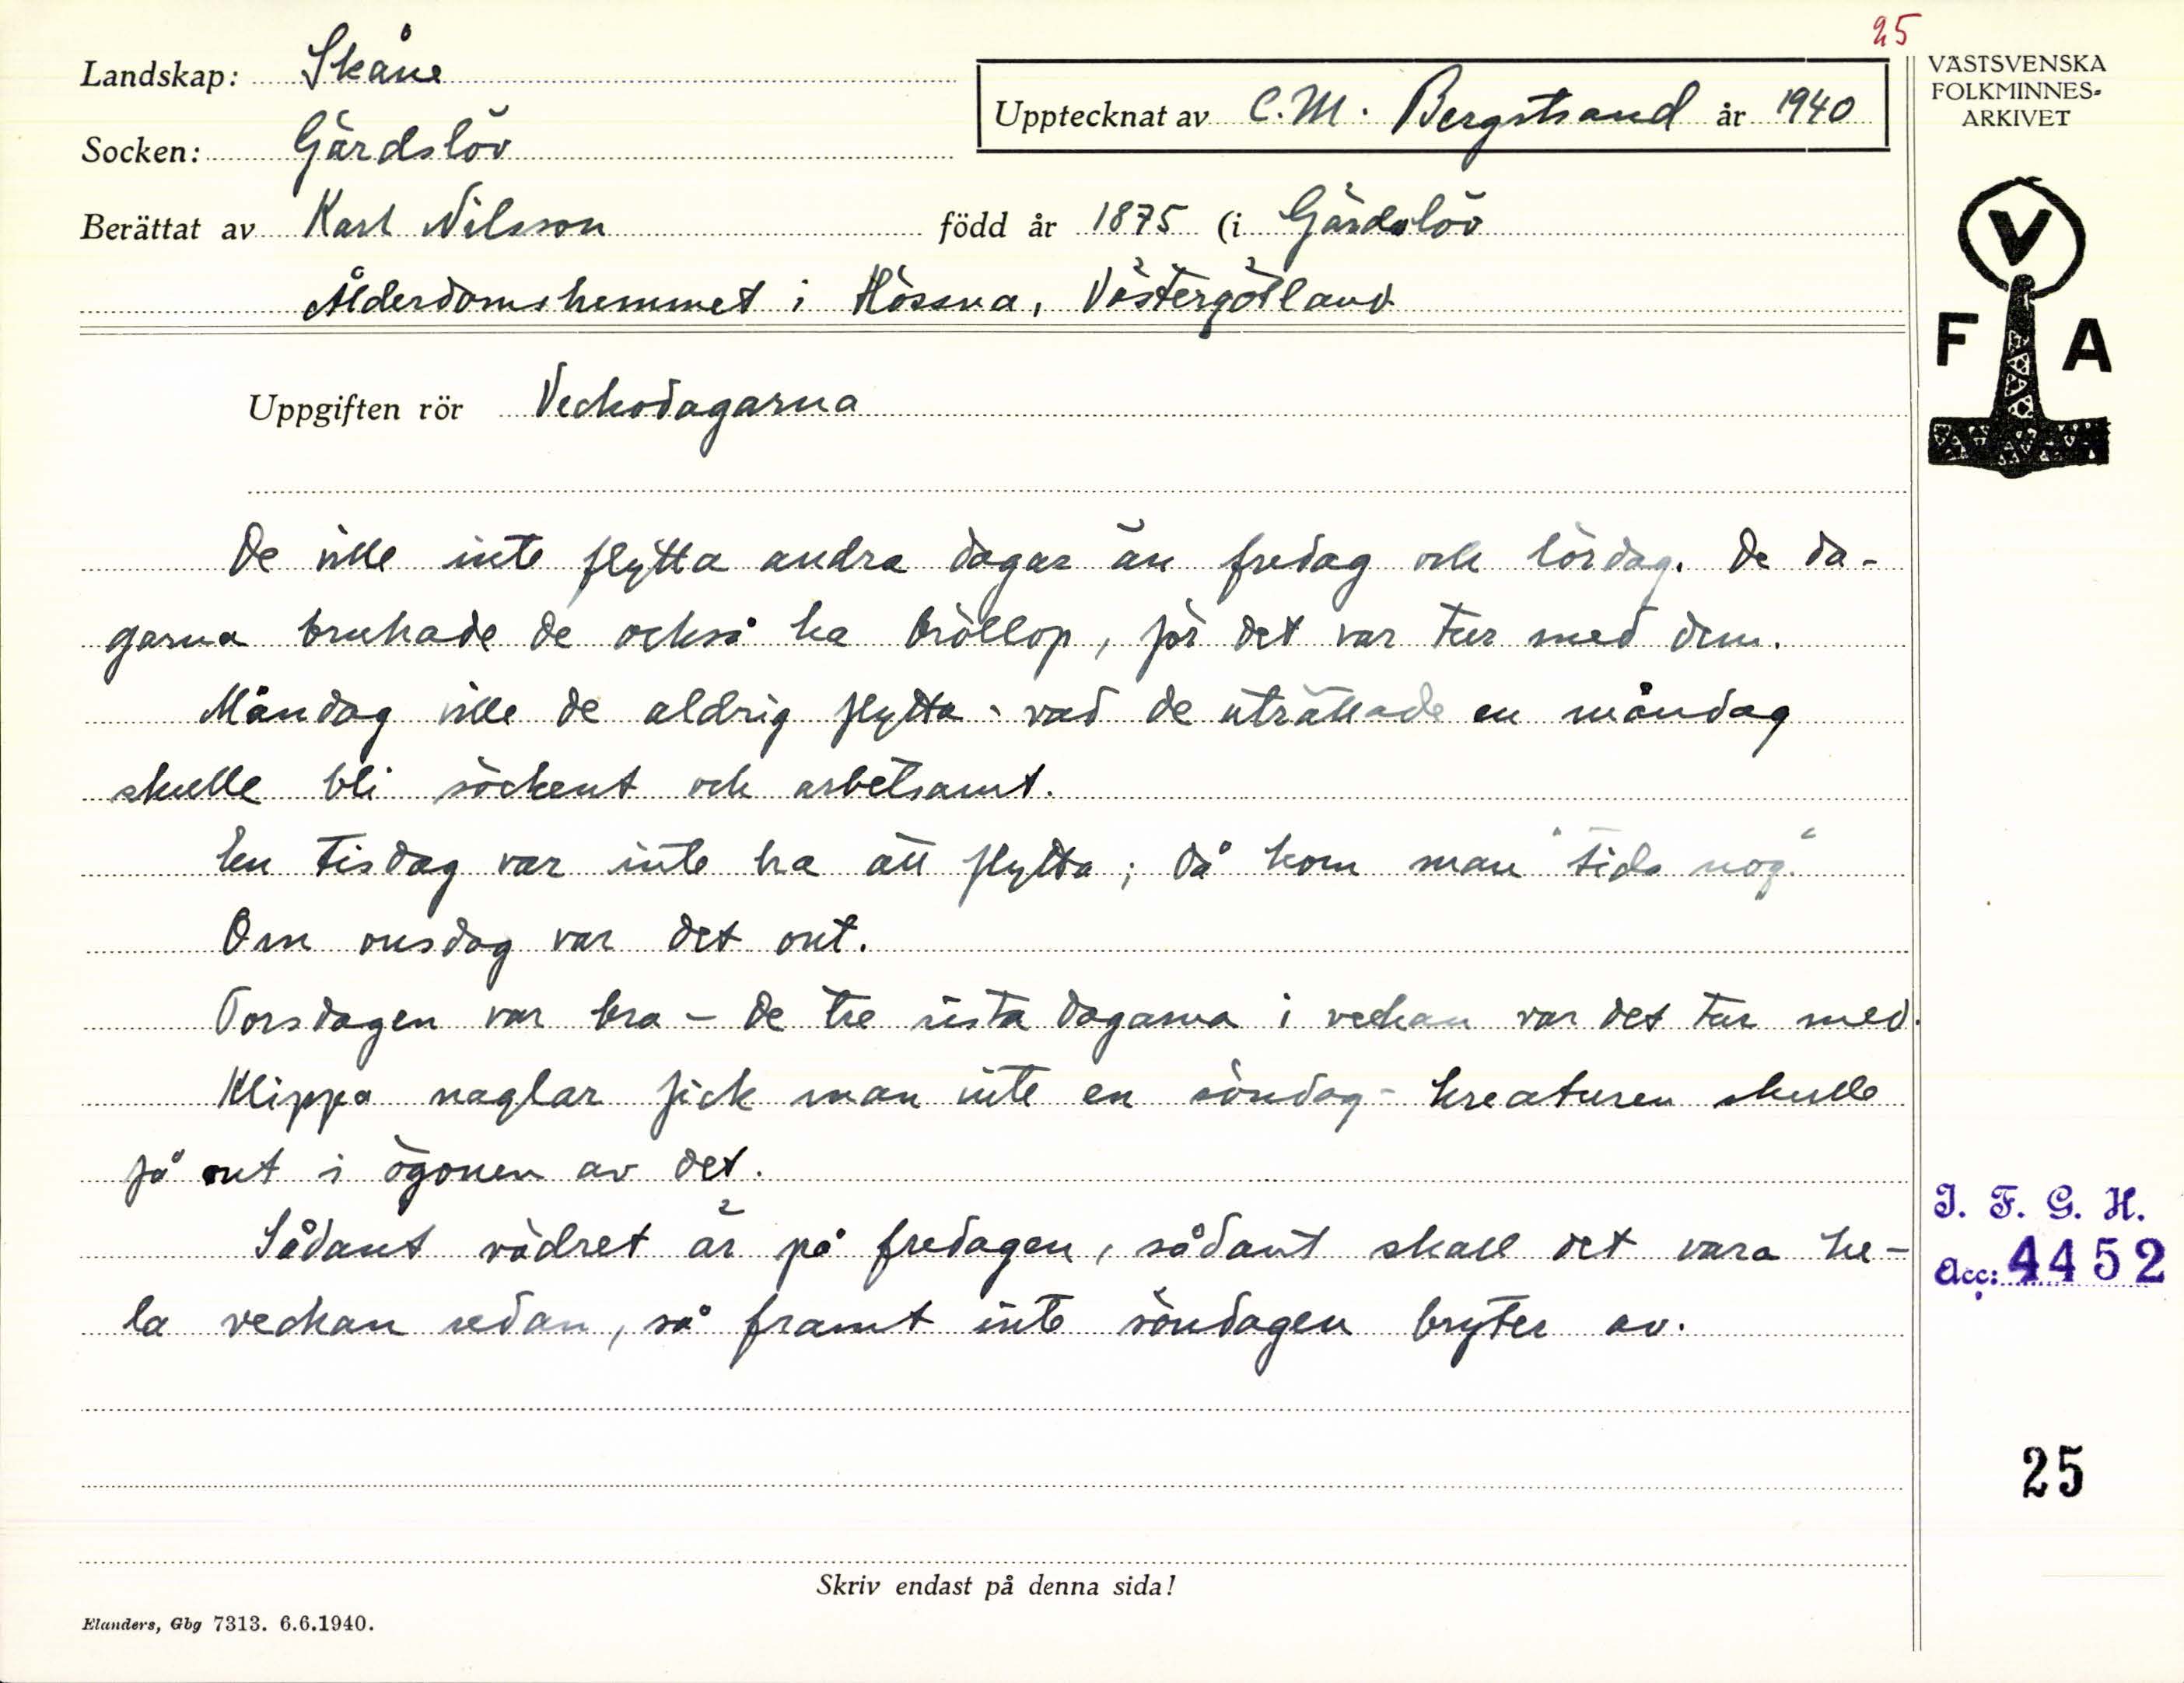 25
Landskap: Skåne
Upptecknat av C.M. Bergstrand år 1940
Socken: Gärdslöv
Berättat av Karl Nilsson född år 1875 (i Gärdslöv
Ålderdomshemmet i Hössna, Västergötland
Uppgiften rör Veckodagarna
De ville inte flytta andra dagar än fredag och lördag. De da-
garna brukade de också ha bröllop, för det var tur med dem.
Måndag ville de aldrig flytta - vad de uträttade en måndag
skulle bli söckent och arbetsamt.
En tisdag var inte bra att flytta; då kom man "tids nog."
Om onsdag var det ont.
Torsdagen var bra - De tre sista dagarna i veckan var det tur med.
Klippa naglar fick man inte en söndag - kreaturen skulle
få ont i ögonen av det.
Sådant vädret är på fredagen, sådant skall det vara he-
la veckan sedan, så framt inte söndagen bryter av.
Skriv endast på denna sida!
Elanders, Gbg 7313. 6.6.1940.
VÄSTSVENSKA
FOLKMINNES-
ARKIVET
V
F A
I. F. G. H.
Acc: 4452
25